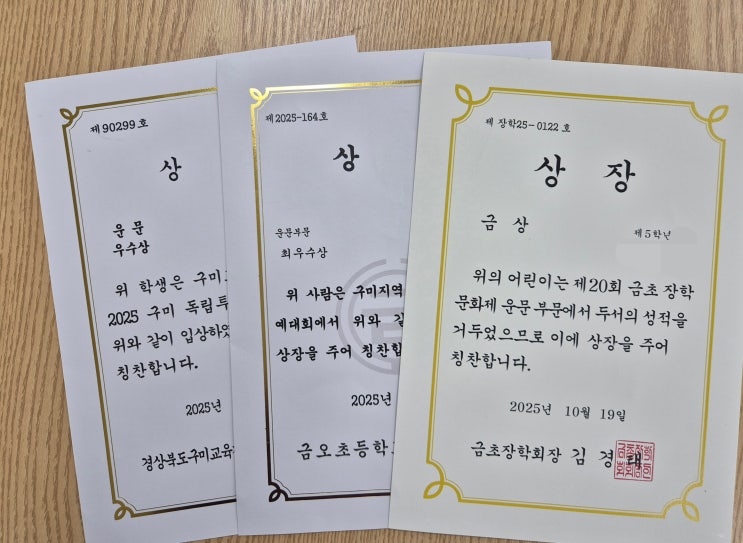 제 90299 호
상
운 문
우수상
위 학생은 구미
2025 구미 독립투
위와 같이 입상하였
칭찬합니다.
2025년
경상북도구미교육
제 2025-164 호
상
운문부문
최우수상
위 사람은 구미지역
예대회에서 위와 같
상장을 주어 칭찬합
2025년
금오초등학교
제 장학25-0122 호
상 장
금 상
제5학년
위의 어린이는 제20회 금초 장학
문화제 운문 부문에서 두서의 성적을
거두었으므로 이에 상장을 주어
칭찬합니다.
2025년 10월 19일
금초장학회장 김 경 태